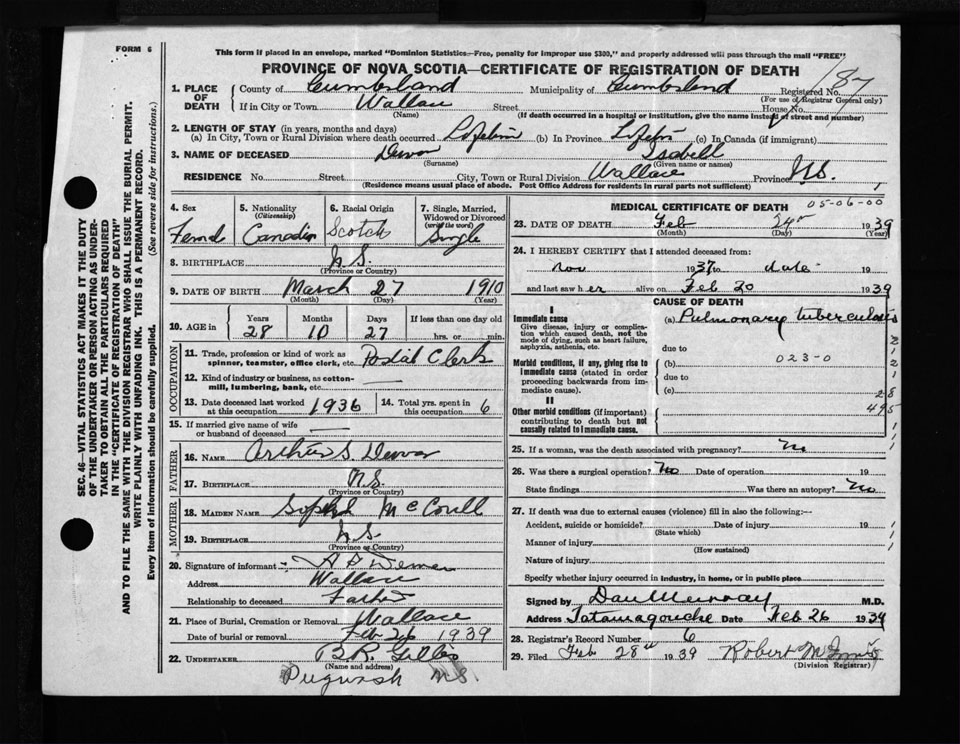 FORM 6
This form if placed in an envelope, marked "Dominion Statistics—Free, penalty for improper use $300," and properly addressed will pass through the mail "FREE"
PROVINCE OF NOVA SCOTIA—CERTIFICATE OF REGISTRATION OF DEATH
187
SEC. 46—VITAL STATISTICS ACT MAKES IT THE DUTY
OF THE UNDERTAKER OR PERSON ACTING AS UNDER-
TAKER TO OBTAIN ALL THE PARTICULARS REQUIRED
IN THE "CERTIFICATE OF REGISTRATION OF DEATH"
AND TO FILE THE SAME WITH THE DIVISION REGISTRAR WHO SHALL ISSUE THE BURIAL PERMIT.
WRITE PLAINLY WITH UNFADING INK. THIS IS A PERMANENT RECORD.
Every item of information should be carefully supplied. (See reverse side for instructions.)
1. PLACE OF DEATH County of Cumberland Municipality of Cumberland Registered No.
(For use of Registrar General only)
If in City or Town Wallace Street House No.
(Name) (If death occurred in a hospital or institution, give the name instead of street and number)
2. LENGTH OF STAY (in years, months and days)
(a) In City, Town or Rural Division where death occurred Lifetime (b) In Province Lifetime (c) In Canada (if immigrant)
3. NAME OF DECEASED Isabell
(Surname) (Given name or names)
RESIDENCE No. Street City, Town or Rural Division Wallace Province N.S.
(Residence means usual place of abode. Post Office Address for residents in rural parts not sufficient)
4. Sex Female
5. Nationality (Citizenship) Canadian
6. Racial Origin Scotch
7. Single, Married, Widowed or Divorced (write the word) Single
8. BIRTHPLACE N.S.
(Province or Country)
9. DATE OF BIRTH March 27 1910
(Month) (Day) (Year)
10. AGE in Years Months Days If less than one day old
28 10 27 hrs. or min.
OCCUPATION
11. Trade, profession or kind of work as spinner, teamster, office clerk, etc. Postal Clerk
12. Kind of industry or business, as cotton-mill, lumbering, bank, etc.
13. Date deceased last worked at this occupation 1936
14. Total yrs. spent in this occupation 6
15. If married give name of wife or husband of deceased
FATHER
16. NAME Arthur S.
17. BIRTHPLACE N.S.
(Province or Country)
MOTHER
18. MAIDEN NAME
19. BIRTHPLACE N.S.
(Province or Country)
20. Signature of informant
Address Wallace
Relationship to deceased Father
21. Place of Burial, Cremation or Removal Wallace
Date of burial or removal Feb 26 1939
22. UNDERTAKER B.R. Gillis
(Name and address)
Pugwash N.S.
MEDICAL CERTIFICATE OF DEATH
05-06-00
23. DATE OF DEATH Feb 24th 1939
(Month) (Day) (Year)
24. I HEREBY CERTIFY that I attended deceased from:
Nov 1937 to date 19
and last saw her alive on Feb 20 1939
CAUSE OF DEATH
I
Immediate cause
Give disease, injury or complication which caused death, not the mode of dying, such as heart failure, asphyxia, asthenia, etc.
(a) Pulmonary tuberculosis
due to
Morbid conditions, if any, giving rise to immediate cause (stated in order proceeding backwards from immediate cause).
(b) 023-0
due to
(c)
II
Other morbid conditions (if important) contributing to death but not causally related to immediate cause.
28
495
25. If a woman, was the death associated with pregnancy? No
26. Was there a surgical operation? No Date of operation 19
State findings Was there an autopsy? No
27. If death was due to external causes (violence) fill in also the following:—
Accident, suicide or homicide? Date of injury 19
(State which)
Manner of injury
(How sustained)
Nature of injury
Specify whether injury occurred in industry, in home, or in public place
Signed by Dan Murray M.D.
Address Tatamagouche Date Feb 26 1939
28. Registrar's Record Number 6
29. Filed Feb 28th 1939 Robert
(Division Registrar)